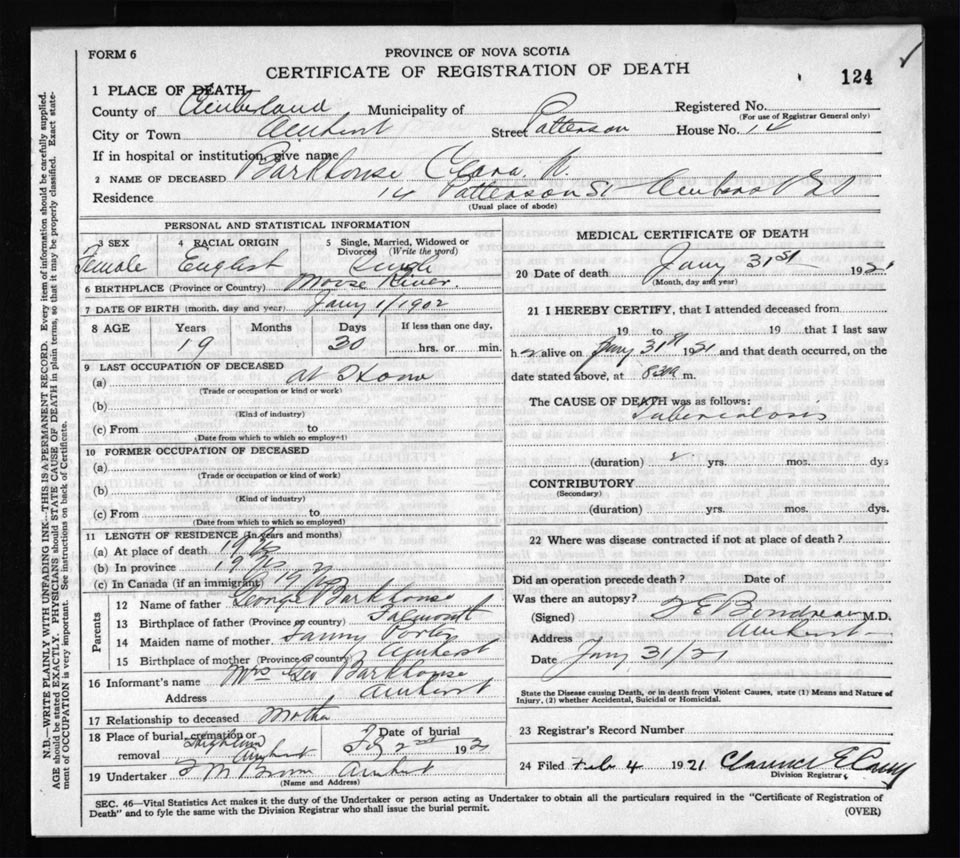 FORM 6
PROVINCE OF NOVA SCOTIA
CERTIFICATE OF REGISTRATION OF DEATH
124
1 PLACE OF DEATH
County of Cumberland Municipality of
Registered No.
(For use of Registrar General only)
City or Town Amherst Street Patterson House No. 14
If in hospital or institution, give name
2 NAME OF DECEASED Barkhouse Clara
Residence 14 Patterson St Amherst
(Usual place of abode)
PERSONAL AND STATISTICAL INFORMATION
3 SEX 4 RACIAL ORIGIN 5 Single, Married, Widowed or Divorced (Write the word)
Female English Single
6 BIRTHPLACE (Province or Country) Moose River
7 DATE OF BIRTH (month, day and year) Jany 1/1902
8 AGE Years Months Days If less than one day,
19 30 hrs. or min.
9 LAST OCCUPATION OF DECEASED
(a) at Home
(Trade or occupation or kind or work)
(b)
(Kind of industry)
(c) From to
(Date from which to which so employed)
10 FORMER OCCUPATION OF DECEASED
(a)
(Trade or occupation or kind of work)
(b)
(Kind of industry)
(c) From to
(Date from which to which so employed)
11 LENGTH OF RESIDENCE (In years and months)
(a) At place of death 19 yrs
(b) In province 19 yrs
(c) In Canada (if an immigrant) 19 yrs
Parents
12 Name of father George Barkhouse
13 Birthplace of father (Province or country)
14 Maiden name of mother Fanny
15 Birthplace of mother (Province or country) Amherst
16 Informant's name Mrs Geo Barkhouse
Address Amherst
17 Relationship to deceased Mother
18 Place of burial, cremation or removal Highland Amherst
Date of burial
2nd 1921
19 Undertaker Amherst
(Name and Address)
MEDICAL CERTIFICATE OF DEATH
20 Date of death Jany 31st 1921
(Month, day and year)
21 I HEREBY CERTIFY, that I attended deceased from
19 to 19 that I last saw
h alive on Jany 31st 1921 and that death occurred, on the
date stated above, at m.
The CAUSE OF DEATH was as follows:
Tuberculosis
(duration) yrs. mos. dys
CONTRIBUTORY
(Secondary)
(duration) yrs. mos. dys.
22 Where was disease contracted if not at place of death?
Did an operation precede death? Date of
Was there an autopsy?
(Signed) M.D.
Address Amherst
Date Jany 31/21
State the Disease causing Death, or in death from Violent Causes, state (1) Means and Nature of
Injury, (2) whether Accidental, Suicidal or Homicidal.
23 Registrar's Record Number
24 Filed Feb 4 1921 Clarence E
Division Registrar.
SEC. 46—Vital Statistics Act makes it the duty of the Undertaker or person acting as Undertaker to obtain all the particulars required in the "Certificate of Registration of
Death" and to fyle the same with the Division Registrar who shall issue the burial permit.
(OVER)
N.B.—WRITE PLAINLY WITH UNFADING INK—THIS IS A PERMANENT RECORD. Every item of information should be carefully supplied.
AGE should be stated EXACTLY. PHYSICIANS should STATE CAUSE OF DEATH in plain terms, so that it may be properly classified. Exact state-
ment of OCCUPATION is very important. See instructions on back of Certificate.